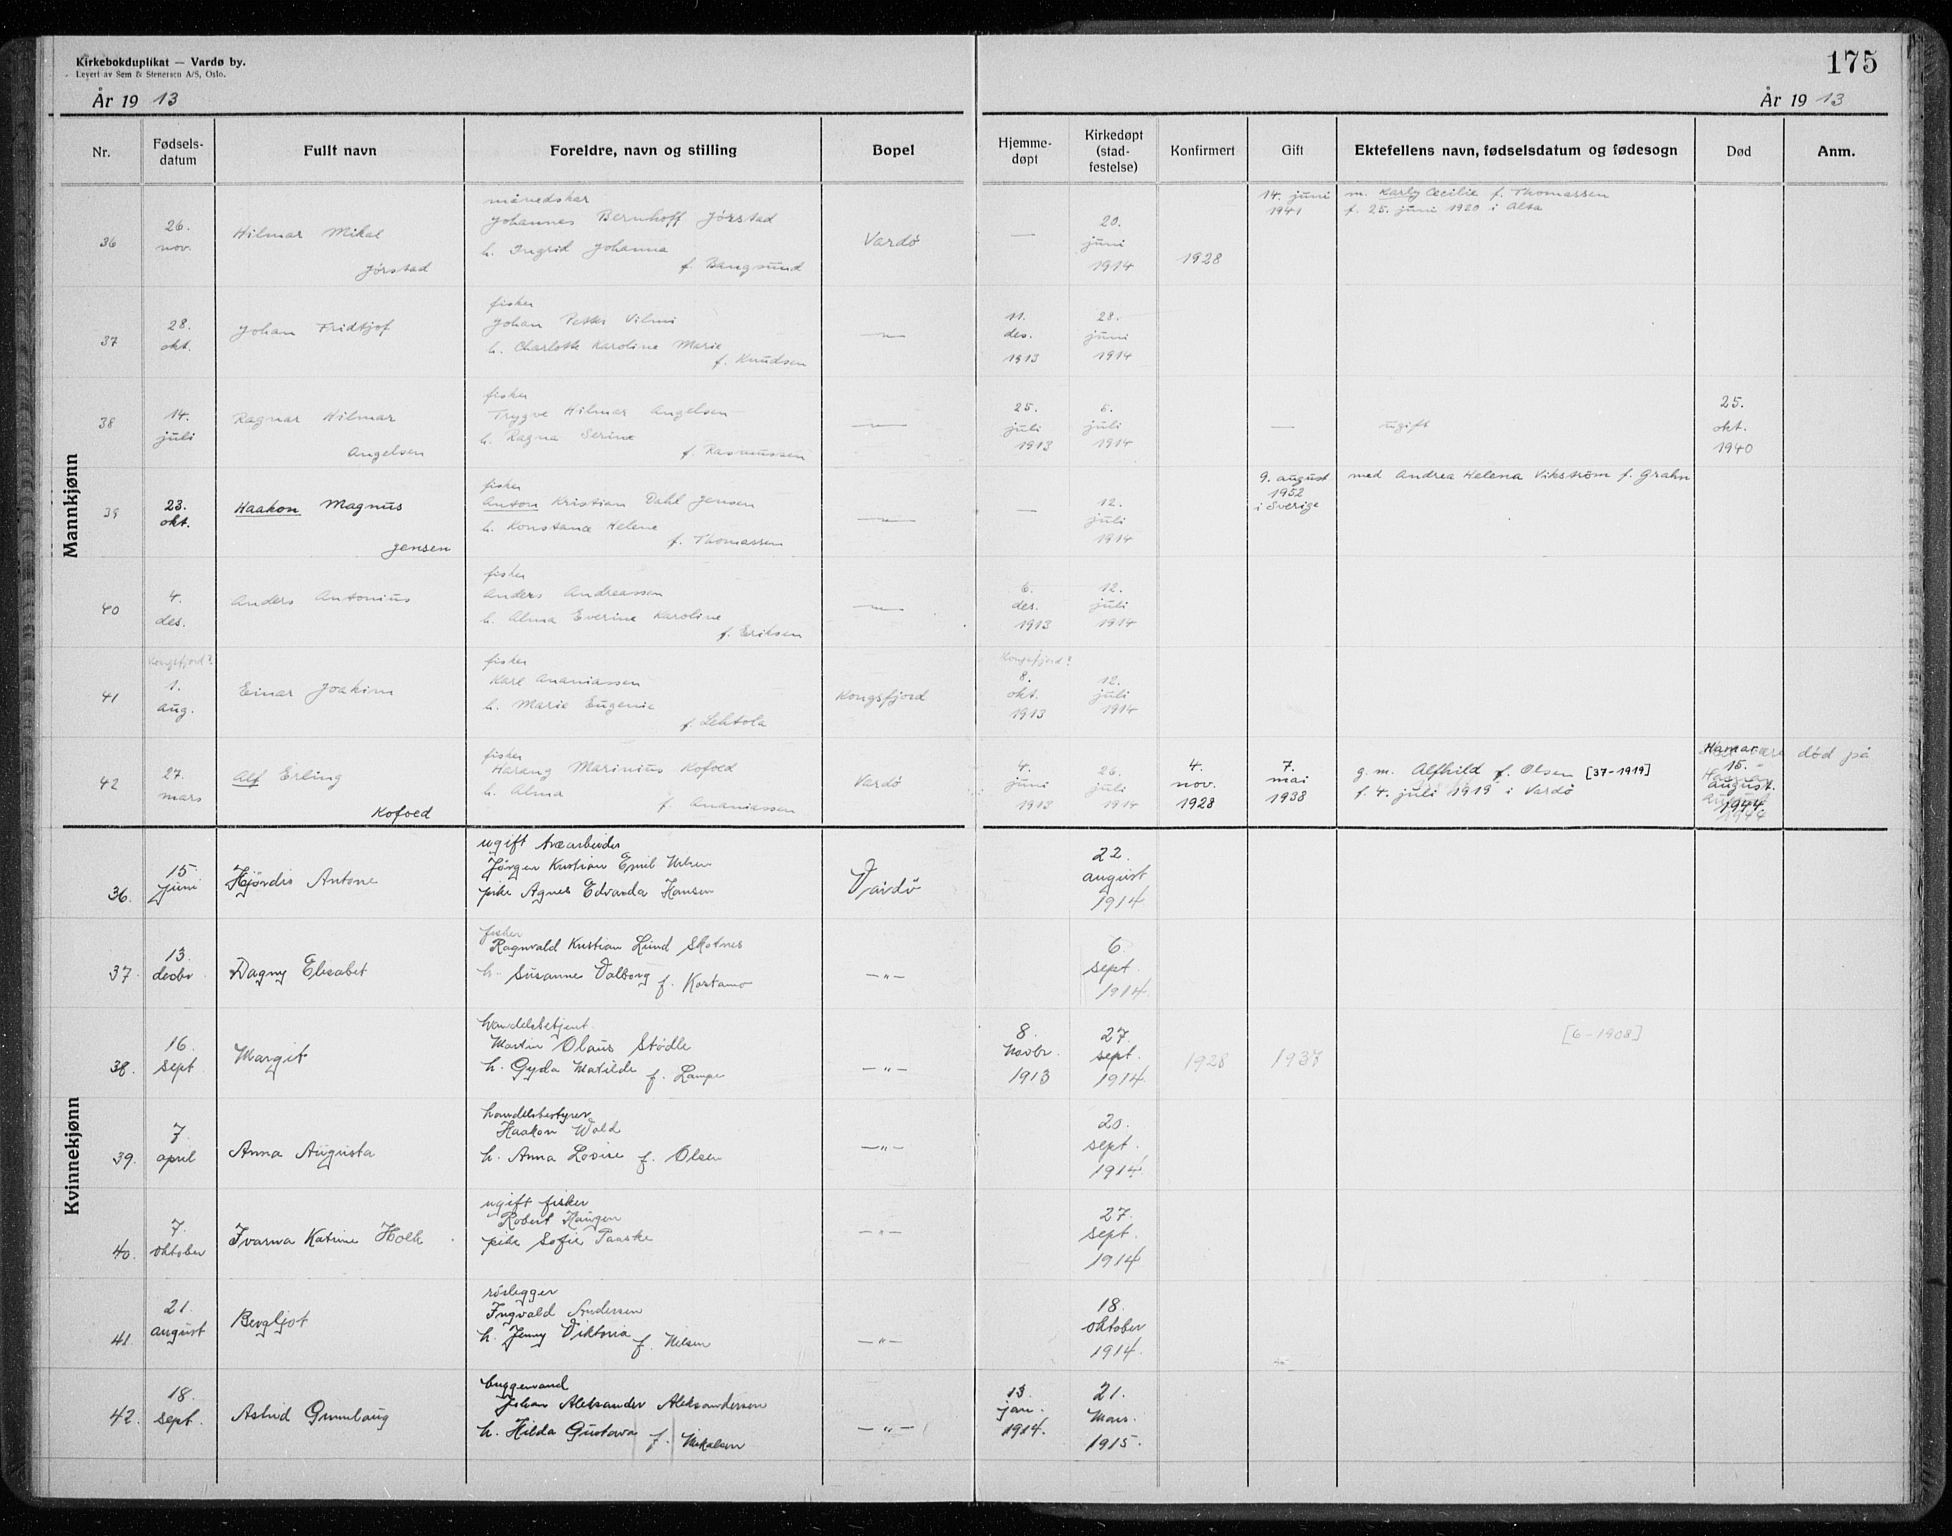 Kirkebokduplikat — Vardø by.
Levert av Sem & Stenersen A/S, Oslo.
175
År 19 13
År 19 13
Nr. Fødsels-datum Fullt navn Foreldre, navn og stilling Bopel Hjemme-døpt Kirkedøpt (stad-festelse) Konfirmert Gift Ektefellens navn, fødselsdatum og fødesogn Død Anm.
Mannkjønn
månedskar 14. juni m. Karly Cecilie f. Thomassen
26. Johannes Bernhoff Jørstad 20. 1941 f. 25. juni 1920 i Alta
36 nov. Hilmar Mikal h. Ingrid Johanna Vardö — juni
Jørstad f. Bangsund 1914 1928
fisker
28. Johan Petter Vilmi 11. 28.
37 okt. Johan Fridtjof h. Charlotte Karoline Marie —"— des. juni
f. Knudsen 1913 1914
fisker
14. Trygve Hilmar Angelsen 25. 5. 25.
38 juli Ragnar Hilmar h. Ragna Serine —"— juli juli — ugift okt.
Angelsen f. Rasmussen 1913 1914 1940
fisker 9. august med Andrea Helena Vikström f. Grahn
23. Anton Kristian Dahl Jensen 12. 1952
39 okt. Haakon Magnus h. Konstance Helene —"— — juli i Sverige
Jensen f. Thomassen 1914
fisker
4. Anders Andreassen 6. 12.
40 des. Anders Antonius h. Alma Everine Karoline —"— des. juli
f. Eriksen 1913 1914
Kongsfjord? fisker Kongsfjord?
1. Karl Ananiassen 8. 12.
41 aug. Einar Joakim h. Marie Eugenie Kongsfjord okt. juli
f. Lehtola 1913 1914
fisker Hamar død på
27. Harang Marinius Kofoed 4. 26. 4. 7. g. m. Alfhild f. Olsen [37-1919] 15.
42 mars Alf Erling h. Alma Vardö juni juli nov. mai f. 4. juli 1919 i Vardö august.
Kofoed f. Ananiassen 1913 1914 1928 1938 1944
Kvinnekjønn
ugift
15 Jørgen Kristian Emil Nilsen 22.
36. juni Hjördis Antone pike Agnes Edvarda Hansen Vardö august
1914
fisker
13. Ragnvald Kristian Lund Skotnes 6.
37. decbr Dagny Elisabet h. Susanne Valborg f. Kostamo —"— sept.
1914.
handelsbetjent
16. Martin Olaus Stödle 8. 27. [6-1908]
38. sept Margit h. Gyda Matilde f. Lampe —"— Novbr. sept. 1928 1937
1913 1914.
handelsbestyrer
7 Haakon Wold 20.
39. april Anna Augusta h. Anna Lovise f. Olsen —"— sept.
1914.
ugift fisker
7. Robert Haugen 27.
40. oktober Ivarna Katrine Holk pike Sofie Paaske —"— sept.
1914
rörlegger
21. Ingvald Andersen 18.
41. august Bergljot h. Jenny Viktoria f. Nilsen —"— oktober
1914.
buggemand
18. Johan Aleksander Aleksandersen 13. 21.
42. sept. Astrid Gunnlaug h. Hilda Gustava f. Mikalsen —"— jan. Mars.
1914. 1915.